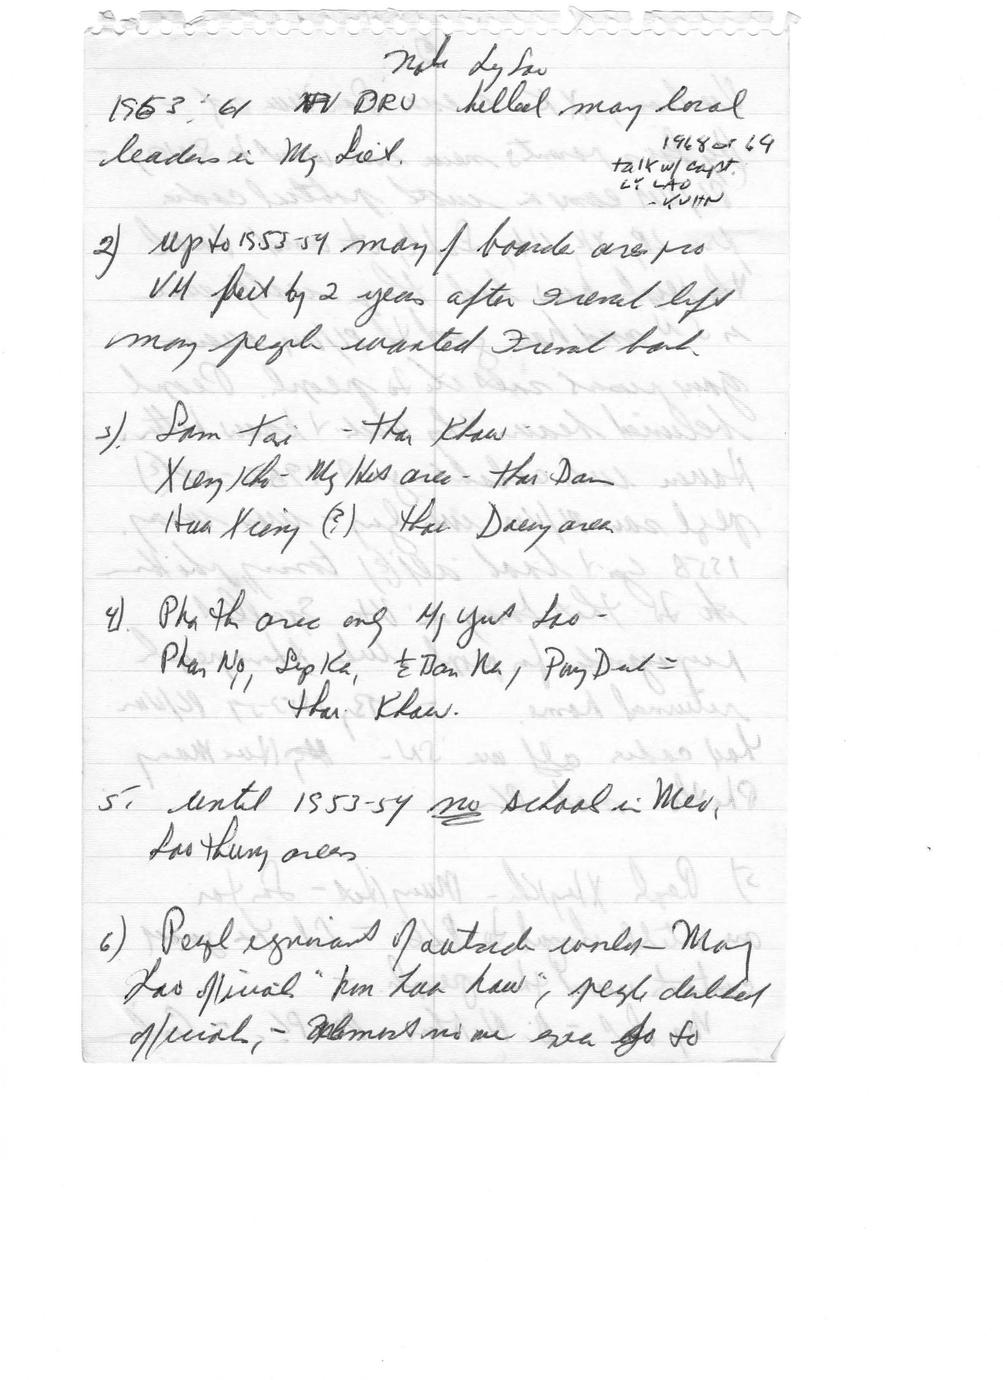 Note Ly Lao
1953: 61 DRV killed many local
leaders in Mg Siet.
1968 or 69
talk w/ capt.
LY LAO
- KUHN
2) up to 1953-54 many of border area pro
VM but by 2 years after French left
many people wanted French back.
3). Sam Tai - thai Khaw -
Xieng Kho - Mg Het area - thai Dam
Hua Xieng (?) thai Daeng area
4). Pha Thi area only Mg Yut Lao -
Phan No, Sop Ka, Dan Na, Pong Dut =
thai Khaw.
5. until 1953-54 no school in Meo,
Lao thung areas
6) People ignorant of outside world - Many
Lao officials " hua ", people disliked
officials, - Almost no one ever go to